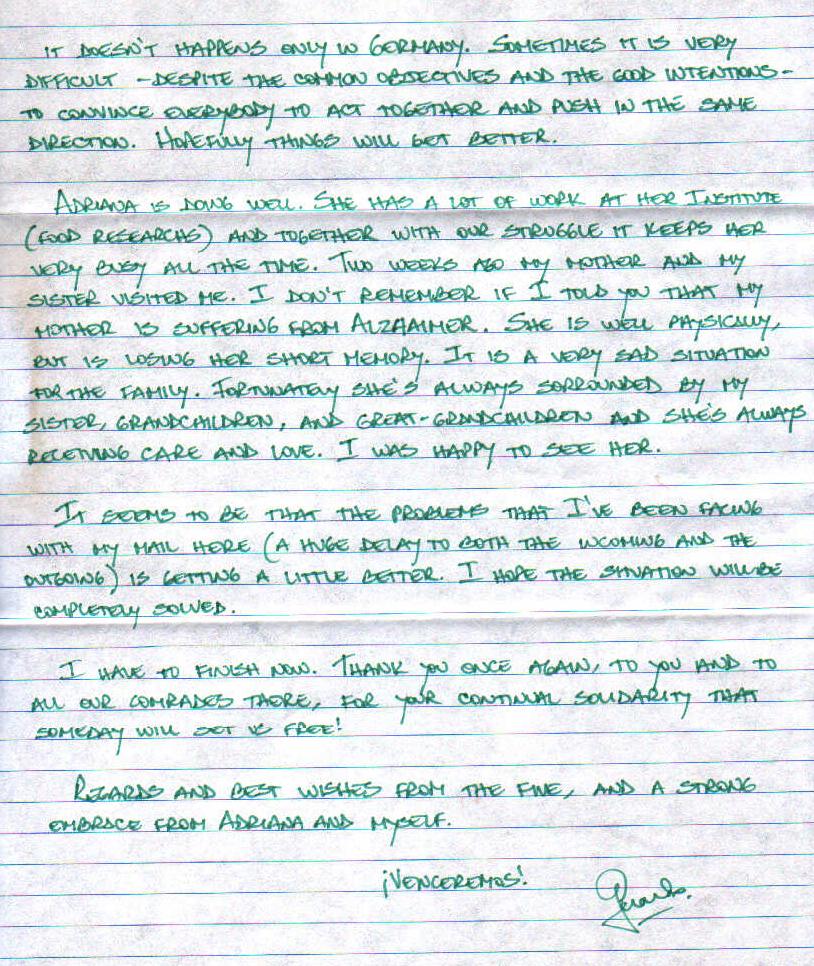 IT DOESN'T HAPPENS ONLY IN GERMANY. SOMETIMES IT IS VERY
DIFFICULT -DESPITE THE COMMON OBJECTIVES AND THE GOOD INTENTIONS-
TO CONVINCE EVERYBODY TO ACT TOGETHER AND PUSH IN THE SAME
DIRECTION. HOPEFULLY THINGS WILL GET BETTER.
ADRIANA IS DOING WELL. SHE HAS A LOT OF WORK AT HER INSTITUTE
(FOOD RESEARCHS) AND TOGETHER WITH OUR STRUGGLE IT KEEPS HER
VERY BUSY ALL THE TIME. TWO WEEKS AGO MY MOTHER AND MY
SISTER VISITED ME. I DON'T REMEMBER IF I TOLD YOU THAT MY
MOTHER IS SUFFERING FROM ALZHAIMER. SHE IS WELL PHYSICALLY,
BUT IS LOSING HER SHORT MEMORY. IT IS A VERY SAD SITUATION
FOR THE FAMILY. FORTUNATELY SHE'S ALWAYS SORROUNDED BY MY
SISTER, GRANDCHILDREN, AND GREAT-GRANDCHILDREN AND SHE'S ALWAYS
RECEIVING CARE AND LOVE. I WAS HAPPY TO SEE HER.
IT SEEMS TO BE THAT THE PROBLEMS THAT I'VE BEEN FACING
WITH MY MAIL HERE (A HUGE DELAY TO BOTH THE INCOMING AND THE
OUTGOING) IS GETTING A LITTLE BETTER. I HOPE THE SITUATION WILL BE
COMPLETELY SOLVED.
I HAVE TO FINISH NOW. THANK YOU ONCE AGAIN, TO YOU AND TO
ALL OUR COMRADES THERE, FOR YOUR CONTINUAL SOLIDARITY THAT
SOMEDAY WILL SET US FREE!
REGARDS AND BEST WISHES FROM THE FIVE, AND A STRONG
EMBRACE FROM ADRIANA AND MYSELF.
¡VENCEREMOS!
Gerardo.